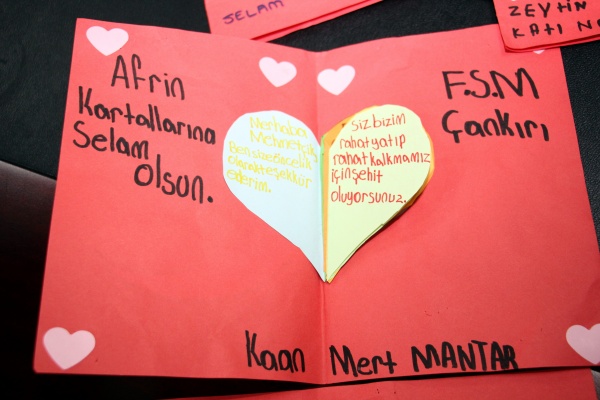 SELAM
ZEYTİN
KATI
Afrin
Kartallarına
Selam
Olsun.
Merhaba
Mehmetçik,
Ben size öncelik
olarak teşekkür
ederim.
siz bizim
rahat yatıp
rahat kalkmamız
için şehit
oluyorsunuz.
F.S.M
Çankırı
Kaan Mert MANTAR